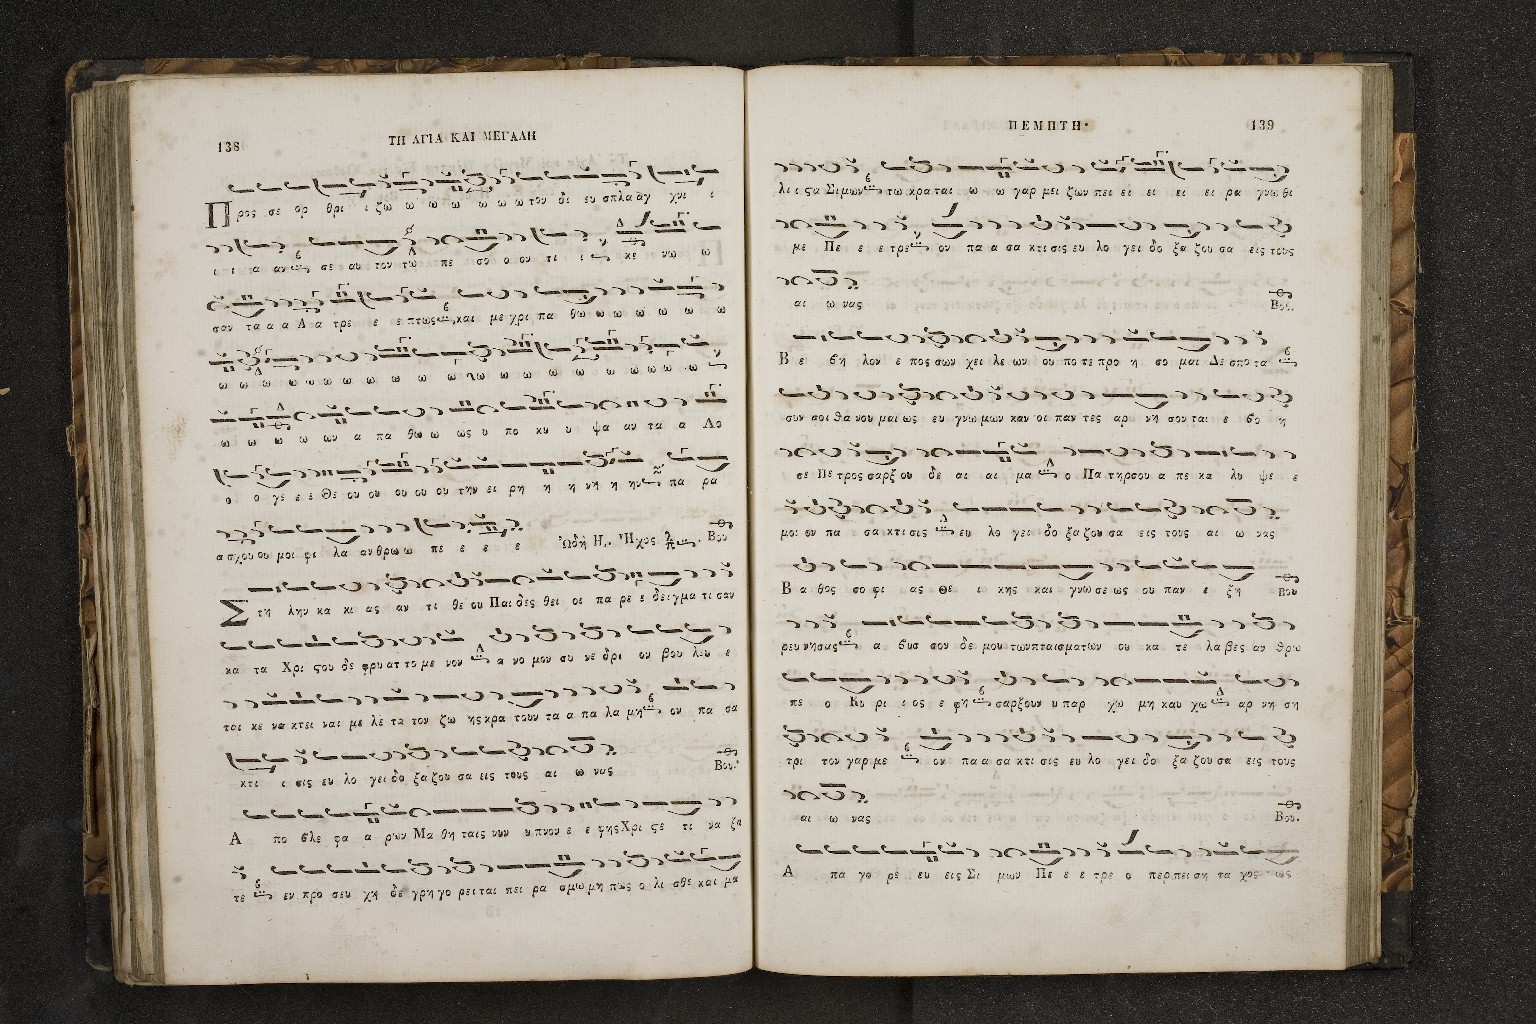 138
ΤΗ ΑΓΙΑ ΚΑΙ ΜΕΓΑΛΗ
Προς σε ορ θρι ι ζω ω ω ω ω ω ω τον δι ευ σπλα αγ χνι ι
ι ι ι α αν σε αυ τον τω πε σο ο ον τι ι κε νω ω
σαν τα α α Α α τρε ε ε πτως και με χρι πα θω ω ω ω ω ω ω
ω ω ω ω ω ω ω ω ω ω ω ω ω ω ω ω ω ω ω ω ω ω
ω ω ω ω ων α πα θω ω ως υ πο κυ υ ψα αν τα α Λο
ο ο γε ε ε Θε ου ου ου ου ου την ει ρη η η νη η ην πα ρα
α σχου ου μοι φι λα αν θρω ω πε ε ε ε Ὠδὴ Η. Ἦχος Βου
Στη λην κα κι ας αν τι θε ου Παι δες θει οι πα ρε ε δειγμα τι σαν
κα τα Χρι ϛου δε φρυ αττο με νον α νο μον συ νε δρι ον βου λευ ε
ται κε να κτει ναι με λε τα τον ζω ης κρα τουν τα α πα λα μη ον πα σα
κτι ι σις ευ λο γει δο ξα ζου σα εις τους αι ω νας Βου.
Α πο βλε φα α ρων Μα θη ταις νυν υ πνον ε ε φης Χρι ϛε τι να ξα
τε εν προ σευ χη δε γρη γο ρει ται πει ρα σμω μη πως ο λι σθε και μα
ΠΕΜΠΤΗ·
139
λι ι ϛα Σι μων τω κρα ται ω ω γαρ μει ζων πει ει ει ει ει ρα γνω θι
με Πε ε ε τρε ον πα α σα κτι σις ευ λο γει δο ξα ζου σα εις τους
αι ω νας Βου.
Β ε βη λον ε πος σων χει λε ων ου πο τε προ η σο μαι Δε σπο τα
συν σοι θα νου μαι ως ευ γνω μων καν οι παν τες αρ νη σον ται ε βο η
σε Πε τρος σαρξ ου δε αι αι μα ο Πα τηρ σου α πε κα λυ ψε ε
μοι ον πα σα κτι σις ευ λο γει δο ξα ζου σα εις τους αι ω νας
Β α θος σο φι ας θε ι κης και γνω σε ως ου παν ε ξη Βου
ρευ νησας α βυσ σον δε μου των πταισματων ου κα τε λα βες αν θρω
πε ο Κυ ρι ι ος ε φη σαρξ ουν υ παρ χω μη καυ χω αρ νη ση
τρι τον γαρ με ον πα α σα κτι σις ευ λο γει δο ξα ζου σα εις τους
αι ω νας Βου.
Α πα γο ρε ευ εις Σι μων Πε ε ε τρε ο περ πει ση τα χος ως